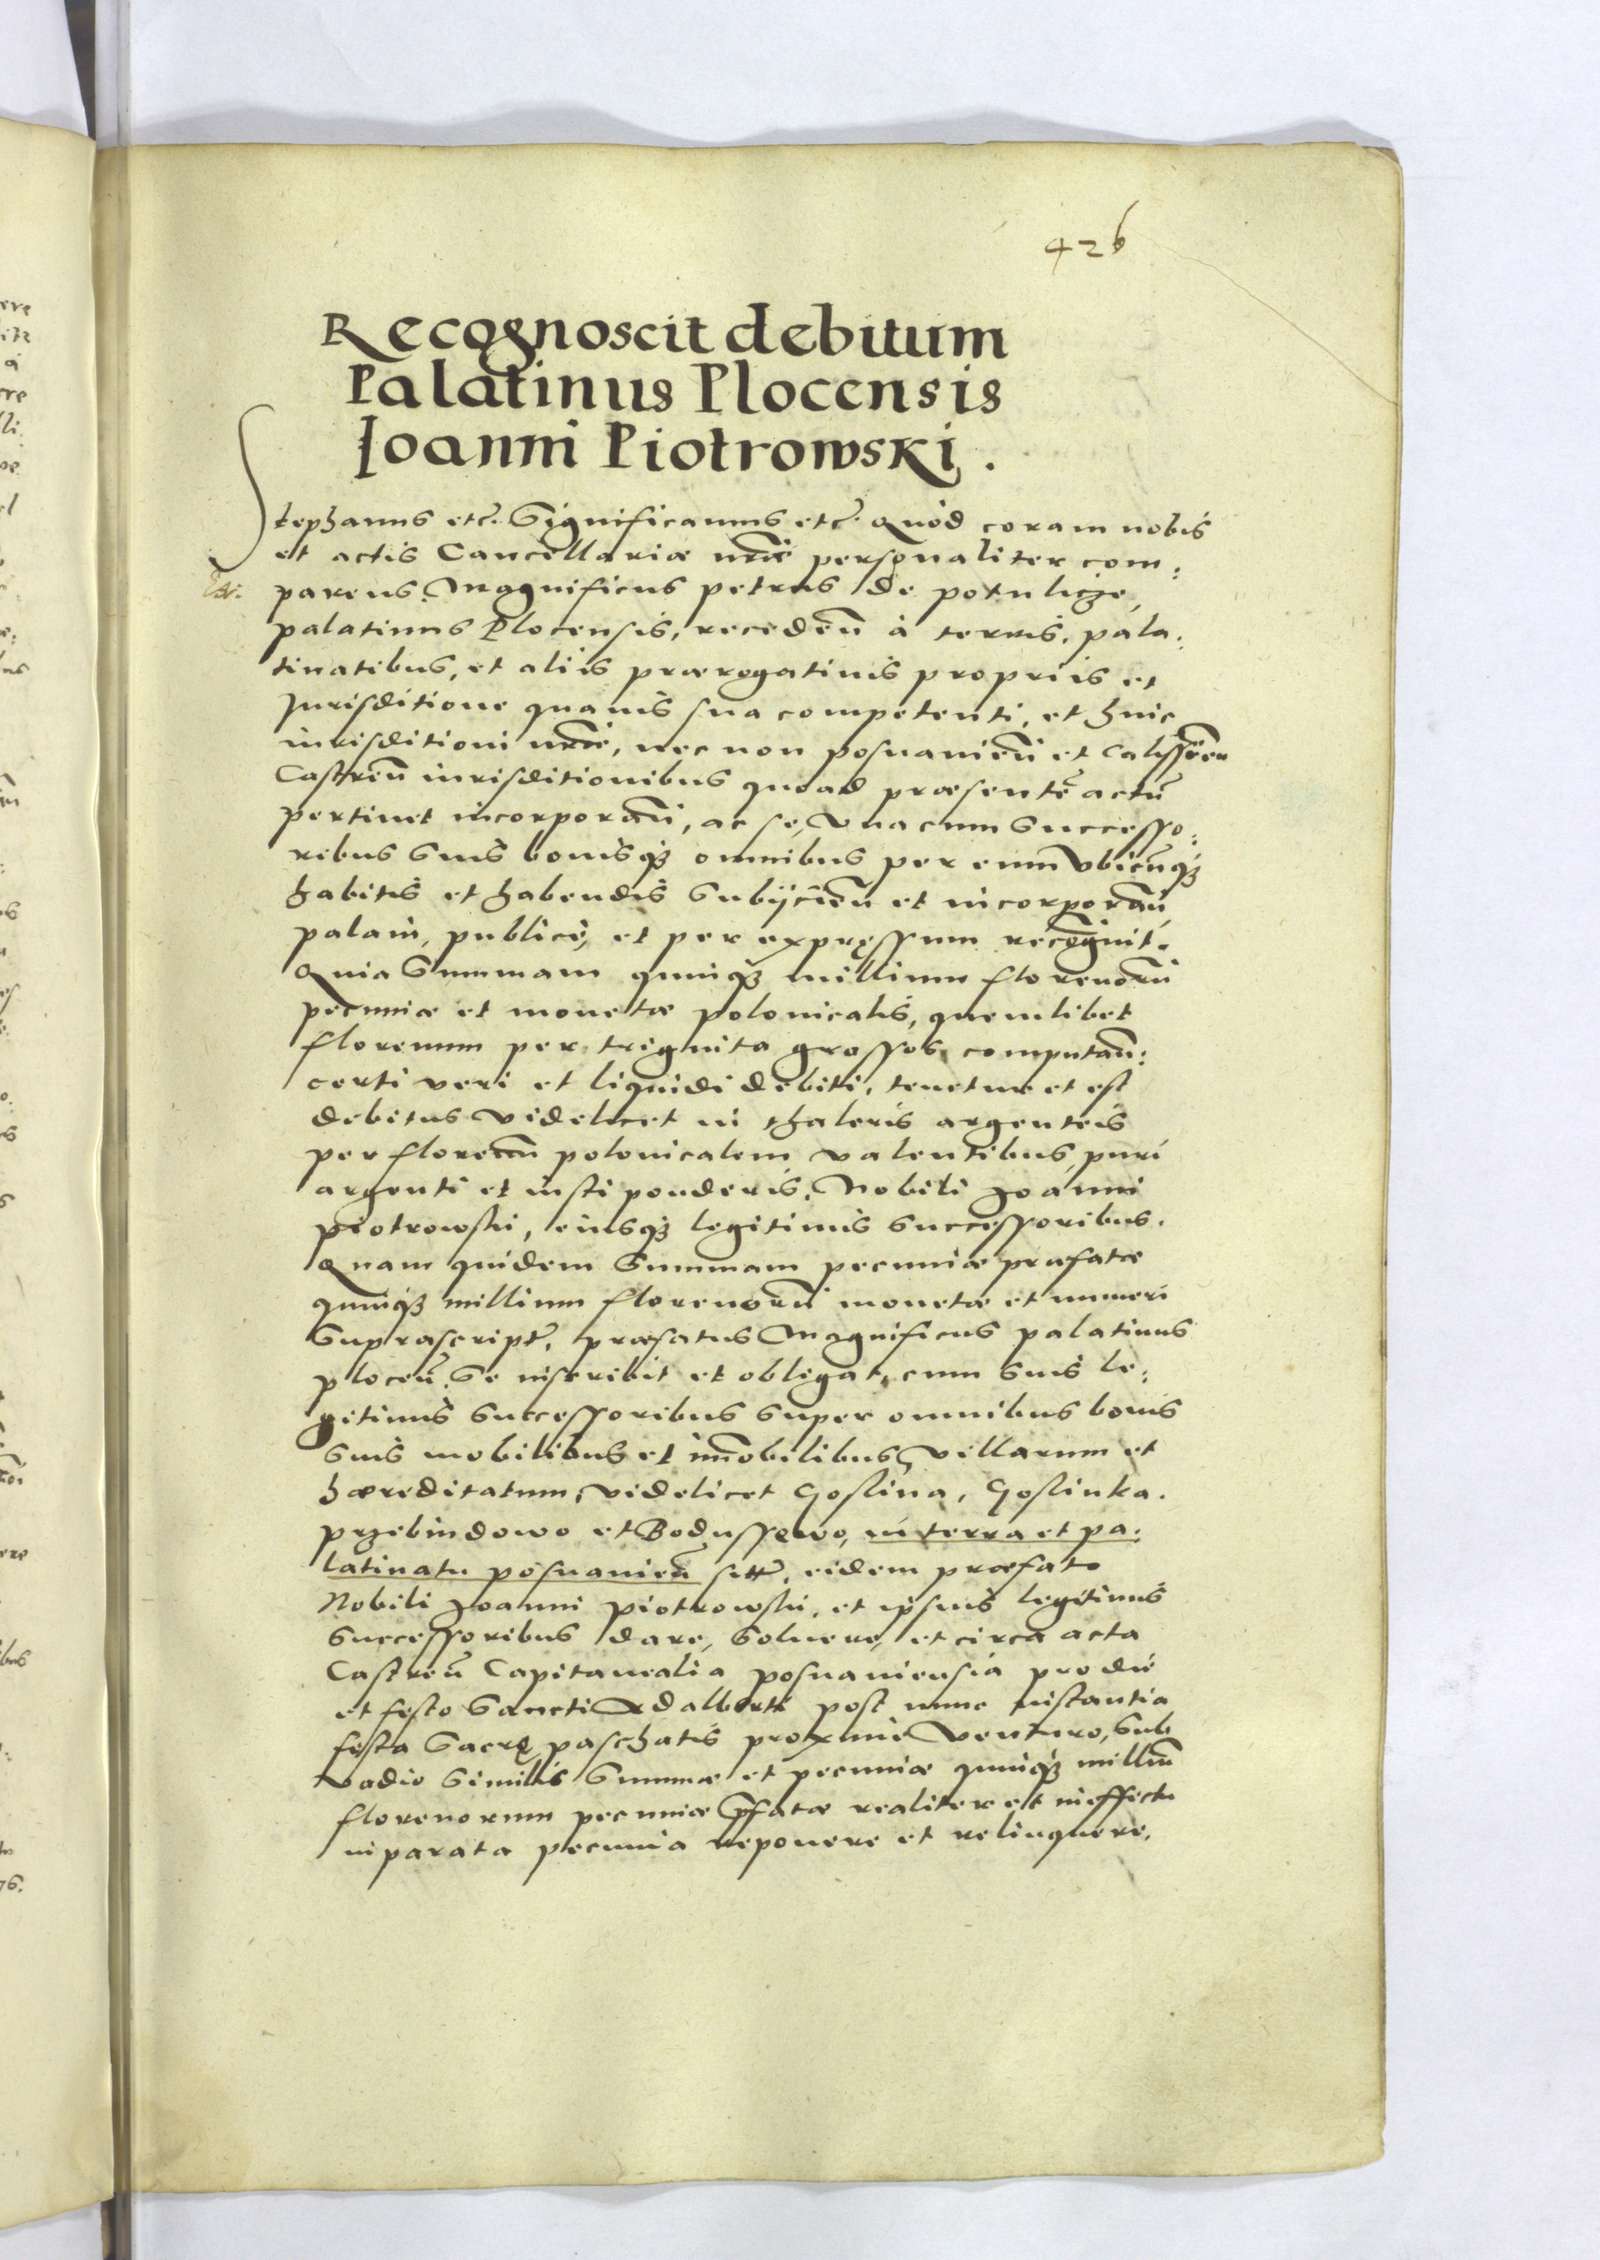 426
Recognoscit debitum
Palatinus Plocensis
Ioanni Piotrowski.
Stephanus etc. Significamus etc. Quod coram nobis
et actis Cancellariæ nr̃æ personaliter com:
parens Magnificus petrus de potulicze,
palatinus Plocensis, recedeñ à terris, pala:
tinatibus, et aliis prærogativis propriis et
Jurisditione quavis sua competenti, et huic
iurisditioni nr̃æ, nec non posnanieñ et Calissieñ
Castreñ iurisditionibus quoad præsentẽ actũ
pertinet incorporañ, ac se, una cum successo:
ribus suis bonisq3 omnibus per eum ubicũq3
habitis et habendis subijcieñ et incorporañ,
palam, publicè, et per expręssum recognit.
Quia Summam quinq3 millium florenorũ
pecuniæ et monetæ polonicalis, quemlibet
florenum per triginta grossos computañ:
certi veri et liquidi debiti, tenetur et est
debitus videlicet in thaleris argenteis
per florenũ polonicalem valentibus, puri
argenti et iusti ponderis, Nobili Joanni
Piotrowski, eiusq3 legitimis successoribus.
Quam quidem summam pecuniæ præfatæ
quinq3 millium florenorũ monetæ et numeri
suprascript̃, præfatus Magnificus palatinus
ploceñ se inscribit et obligat, cum suis le:
gitimis successoribus super omnibus bonis
suis mobilibus et im̃obilibus, villarum et
hæreditatum, videlicet Goslina, Goslinka.
przebindowo et Bodussewo, in terra et pa:
latinatu posnanieñ sitt̃, eidem præfato
Nobili Joanni Piotrowski, et ipsius legitimis
successoribus dare, solvere, et circa acta
Castreñ Capitanealia posnaniensia pro die
et festo Sancti Adalberti post nunc instantia
festa Sacrę paschatis proximè venturo, sub
vadio similis summæ et pecuniæ quinq3 milliũ
florenorum pecuniæ p̃fatæ realiter et in effectu
in parata pecunia reponere et relinquere,